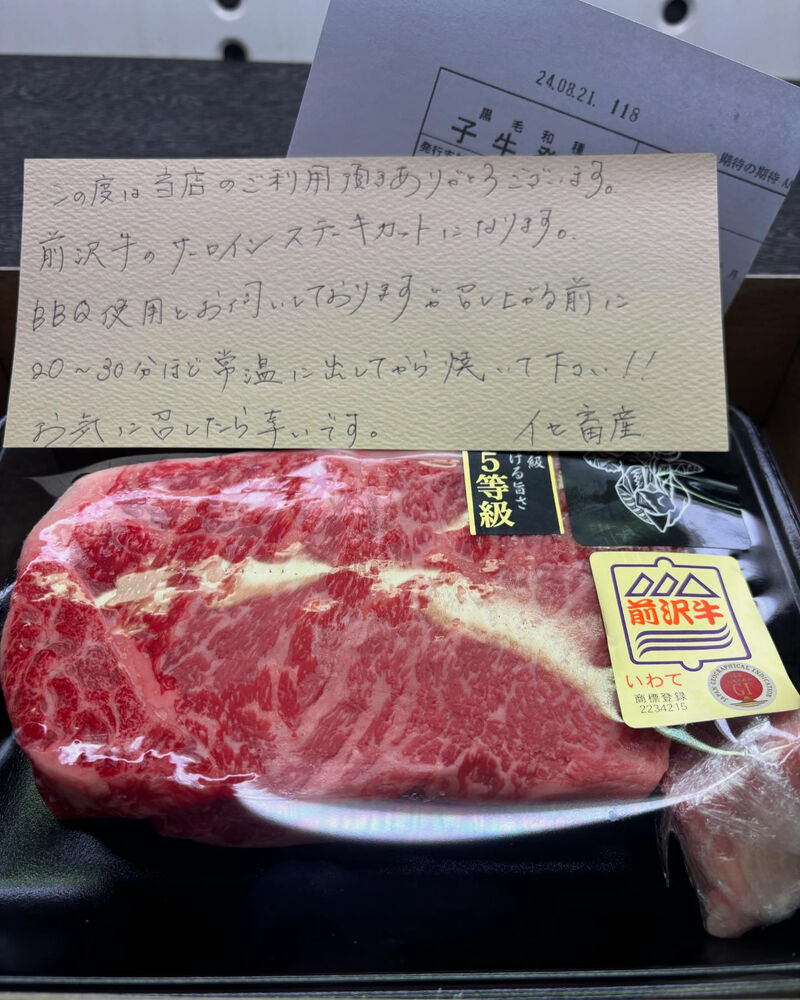 24.08.21. 118
黒毛和種
子牛
期待の期待
月
この度は当店のご利用頂きありがとうございます。
前沢牛のサーロインステーキカットになります。
BBQ使用とお伺いしておりますが召し上がる前に
20〜30分ほど常温に出してから焼いて下さい!!
お気に召したら幸いです。 イセ畜産
級
ける旨さ
5等級
前沢牛
いわて
商標登録
2234215
JAPAN GEOGRAPHICAL INDICATION
GI